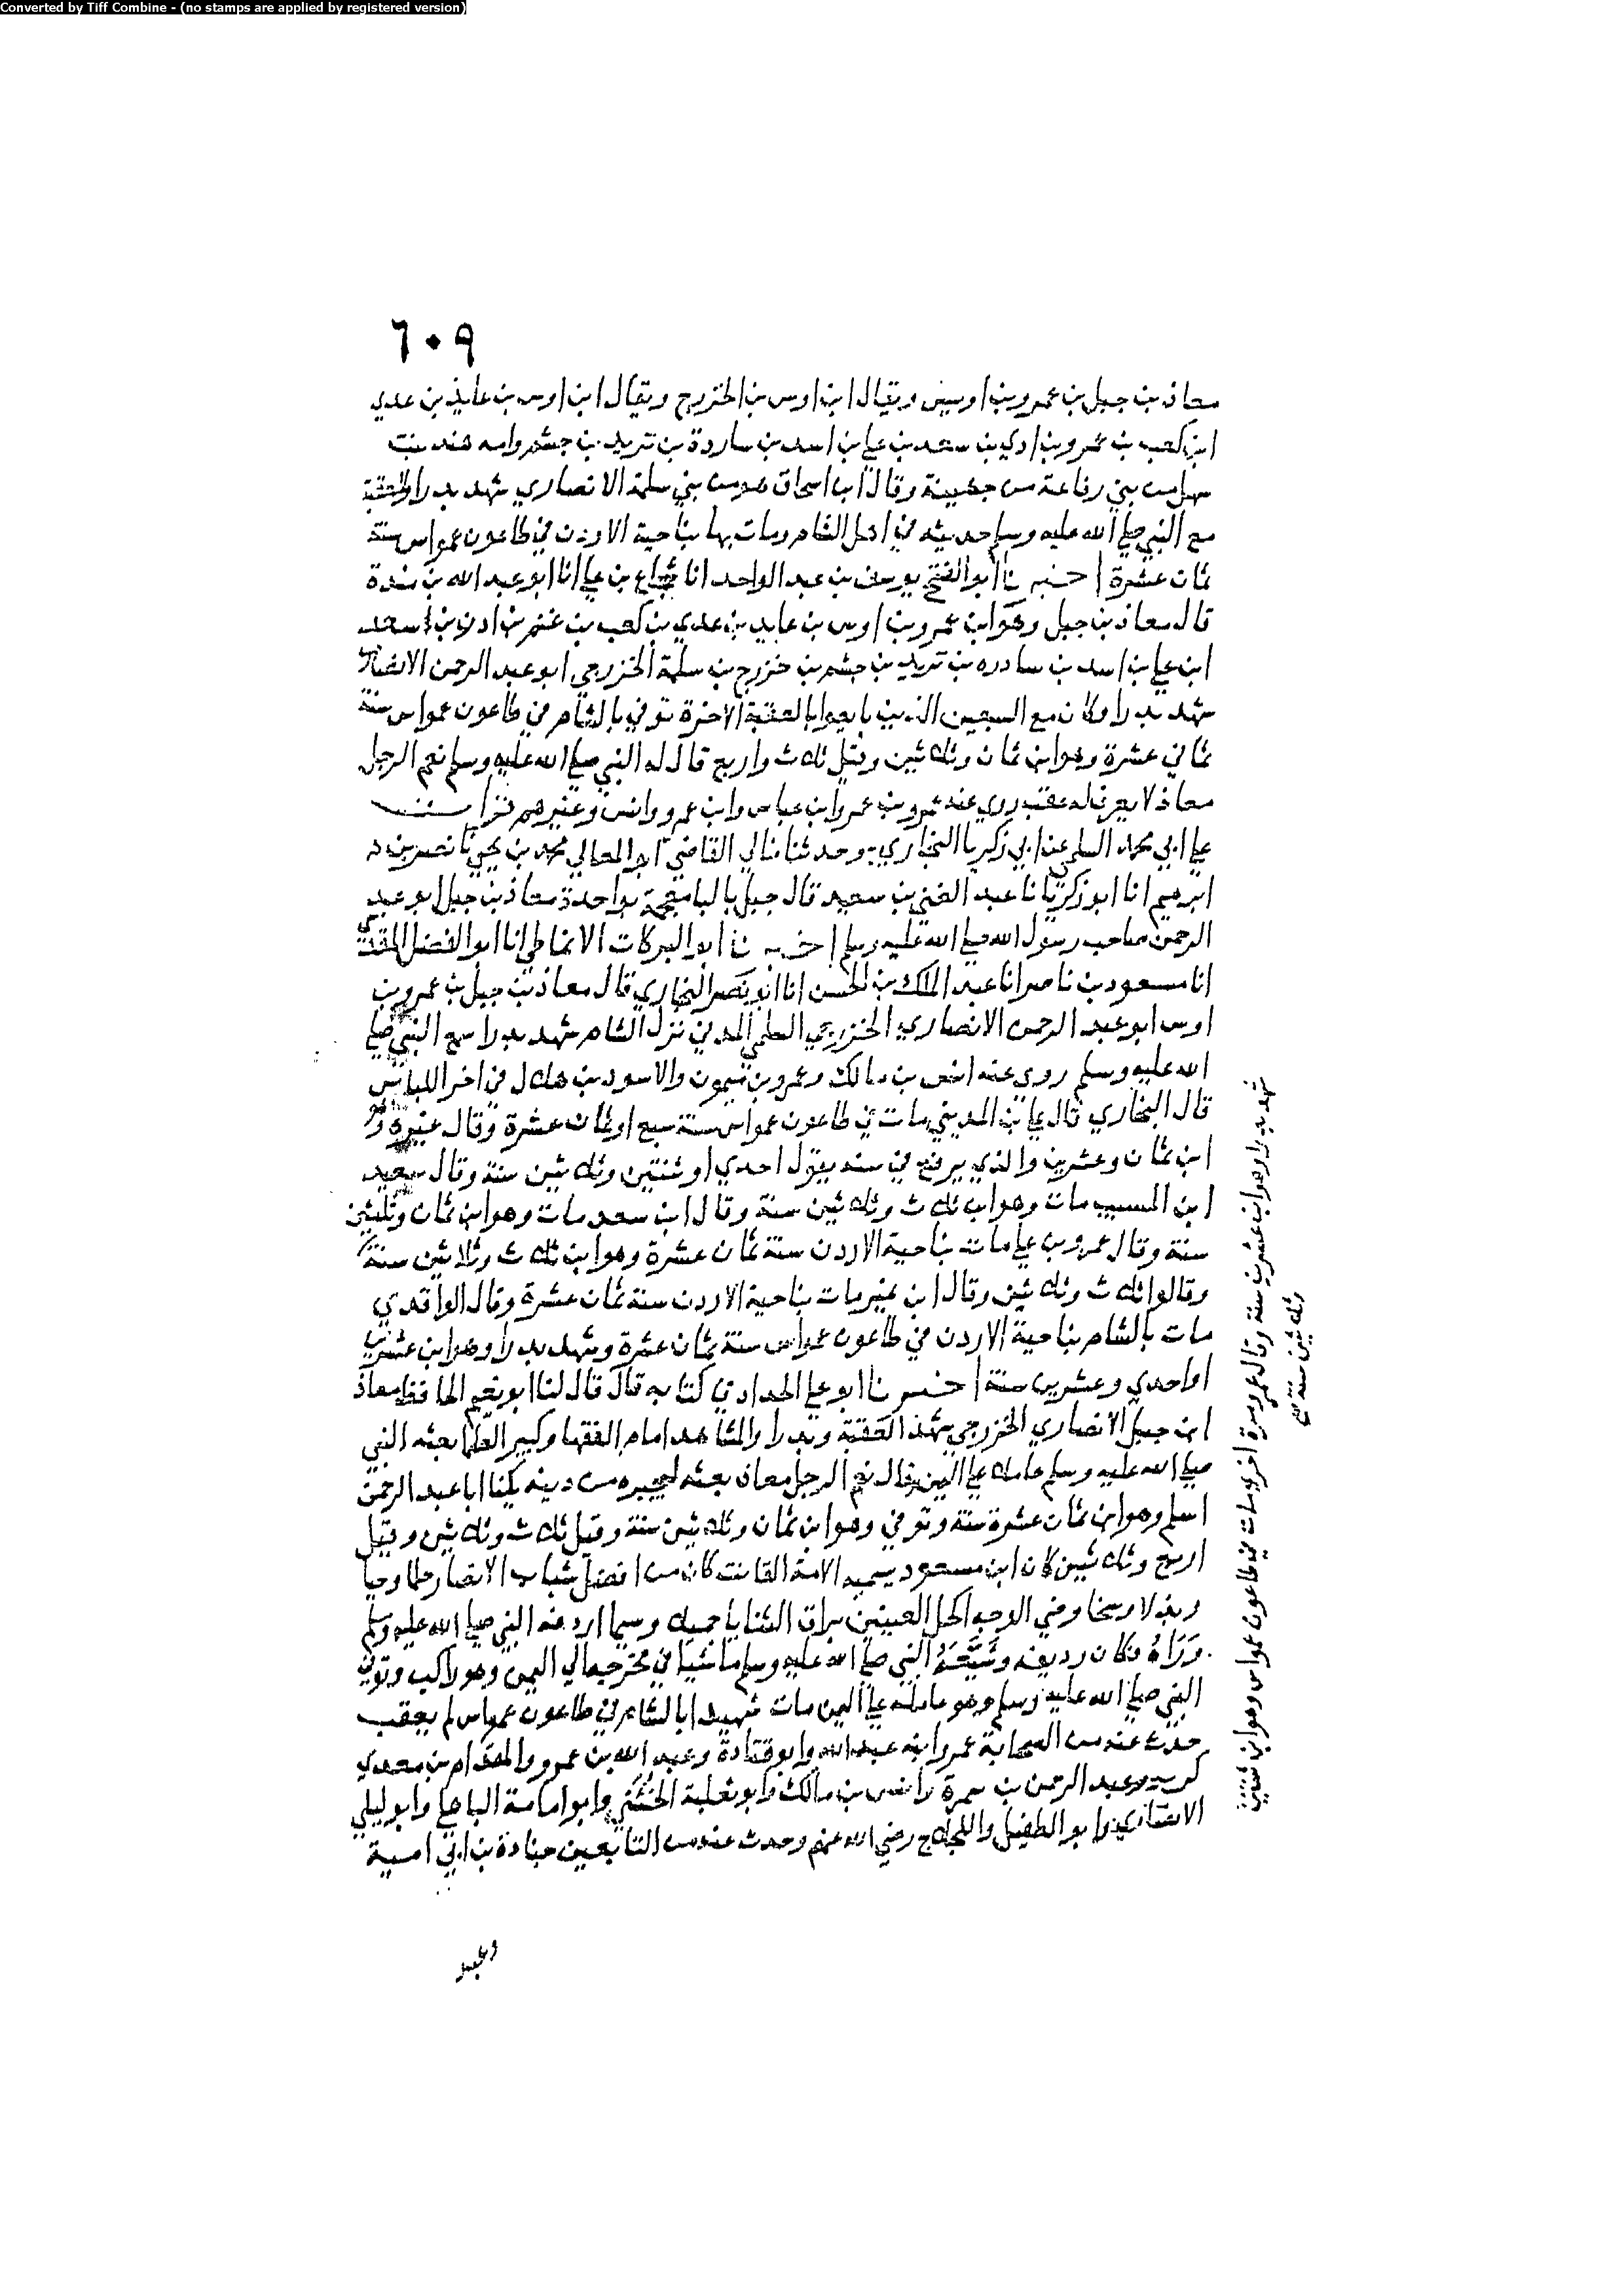 Converted by Tiff Combine - (no stamps are applied by registered version)
٦٠٩
معاذ بن جبل بن عمرو بن اوس ويقال ابن اوس بن الخزرج ويقال ابن اوس بن عايذ بن عدي
ابن كعب بن عمرو بن ادي بن سعد بن علي بن اسد بن ساردة بن تزيد بن جشم وامه هند بنت
سهل من بني رفاعة من جهينة وقال ابن اسحاق هو من بني سلمة الانصاري شهد بدرا والعقبة
مع النبي صلى الله عليه وسلم حديثه في اهل الشام ومات بها بناحية الاردن في طاعون عمواس سنة
ثمان عشرة اخبرنا ابو الفتح يوسف بن عبد الواحد انا شجاع بن علي انا ابو عبد الله بن مندة
قال معاذ بن جبل وهو ابن عمرو بن اوس بن عايد بن عدي بن كعب بن غنم بن ادن بن سعد
ابن علي بن اسد بن سادره بن تزيد بن جشم بن خزرج بن سلمة الخزرجي ابو عبد الرحمن الانصاري
شهد بدرا وكان مع السبعين الذين بايعوا بالعقبة الاخرة توفي بالشام في طاعون عمواس سنة
ثماني عشرة وهو ابن ثمان وثلاثين وقيل ثلاث واربع قال له النبي صلى الله عليه وسلم نعم الرجل
معاذ لا يعرف له عقب روى عنه عمرو بن عمر وابن عباس وابن عمرو وانس وغيرهم قرات
على ابي محمد السلمي عن ابي زكريا البخاري وحدثنا خالي القاضي ابو المعالي محمد بن يحيى نا نصر بن
ابرهيم انا ابو زكريا نا عبد الغني بن سعيد قال جبل بالبا معجمة بواحدة معاذ بن جبل ابو عبد
الرحمن صاحب رسول الله صلى الله عليه وسلم اخبرنا ابو البركات الانماطي انا ابو الفضل المقدسي
انا مسعود بن ناصر انا عبد الملك بن الحسن انا ابو نصر البخاري قال معاذ بن جبل بن عمرو بن
اوس ابو عبد الرحمن الانصاري الخزرجي السلمي المدني نزل الشام شهد بدرا مع النبي صلى
الله عليه وسلم روى عنه انس بن مالك وعمرو بن ميمون والاسود بن هلال في اخر اللباس
قال البخاري قال علي بن المديني مات في طاعون عمواس سنة سبع او ثمان عشرة وقال غيره وهو
ابن ثمان وعشرين والذي يرفع في سنه يقول احدي او ثنتين وثلاثين سنة وقال سعيد
ابن المسيب مات وهو ابن ثلاث وثلاثين سنة وقال ابن سعد مات وهو ابن ثمان وثلثين
سنة وقال عمرو بن علي مات بناحية الاردن سنة ثمان عشرة وهو ابن ثلاث وثلاثين سنة
وقالوا ثلاث وثلاثين وقال ابن نمير مات بناحية الاردن سنة ثمان عشرة وقال الواقدي
مات بالشام بناحية الاردن في طاعون عمواس سنة ثمان عشرة وشهد بدرا وهو ابن عشرين
او احدي وعشرين سنة اخبرنا ابو علي الحداد في كتابه قال قال لنا ابو نعيم الحافظ معاذ
ابن جبل الانصاري الخزرجي شهد العقبة وبدرا والمشاهد امام الفقها وكبير العلما بعثه النبي
صلى الله عليه وسلم عاملا على اليمن وقال نعم الرجل معاذ بعثه ليجبره من دينه يكنا ابا عبد الرحمن
اسلم وهو ابن ثمان عشرة سنة وتوفي وهو ابن ثمان وثلاثين سنة وقيل ثلاث وثلاثين وقيل
اربع وثلاثين كان ابن مسعود يسميه الامة القانت كان من افضل شباب الانصار حلما وحيا
وبذلا وسخا وضي الوجه اكحل العينين براق الثنايا جميلا وسيما اردفه النبي صلى الله عليه وسلم
وَرَاهُ فكان رديفه وَشَيَّعَهُ النبي صلى الله عليه وسلم ماشيا في مخرجه الي اليمن وهو راكب وتوفي
النبي صلى الله عليه وسلم وهو عامله على اليمن مات شهيدا بالشام في طاعون عمواس لم يعقب
حدث عنه من الصحابة عمر وابنه عبد الله وابو قتادة وعبد الله بن عمرو والمقدام بن معدي
كرب وعبد الرحمن بن سمرة وانس بن مالك وابو ثعلبة الخشني وابو امامة الباهلي وابو ليلي
الانصاري وابو الطفيل واللجلاج رضي الله عنهم وحدث عنه من التابعين جنادة بن ابي امية
وعبد
شهد بدرا وهو ابن عشرين سنة وقال عمرو مرة اخرى مات في طاعون عمواس وهو ابن ثنتين
وثلاثين سنة صح